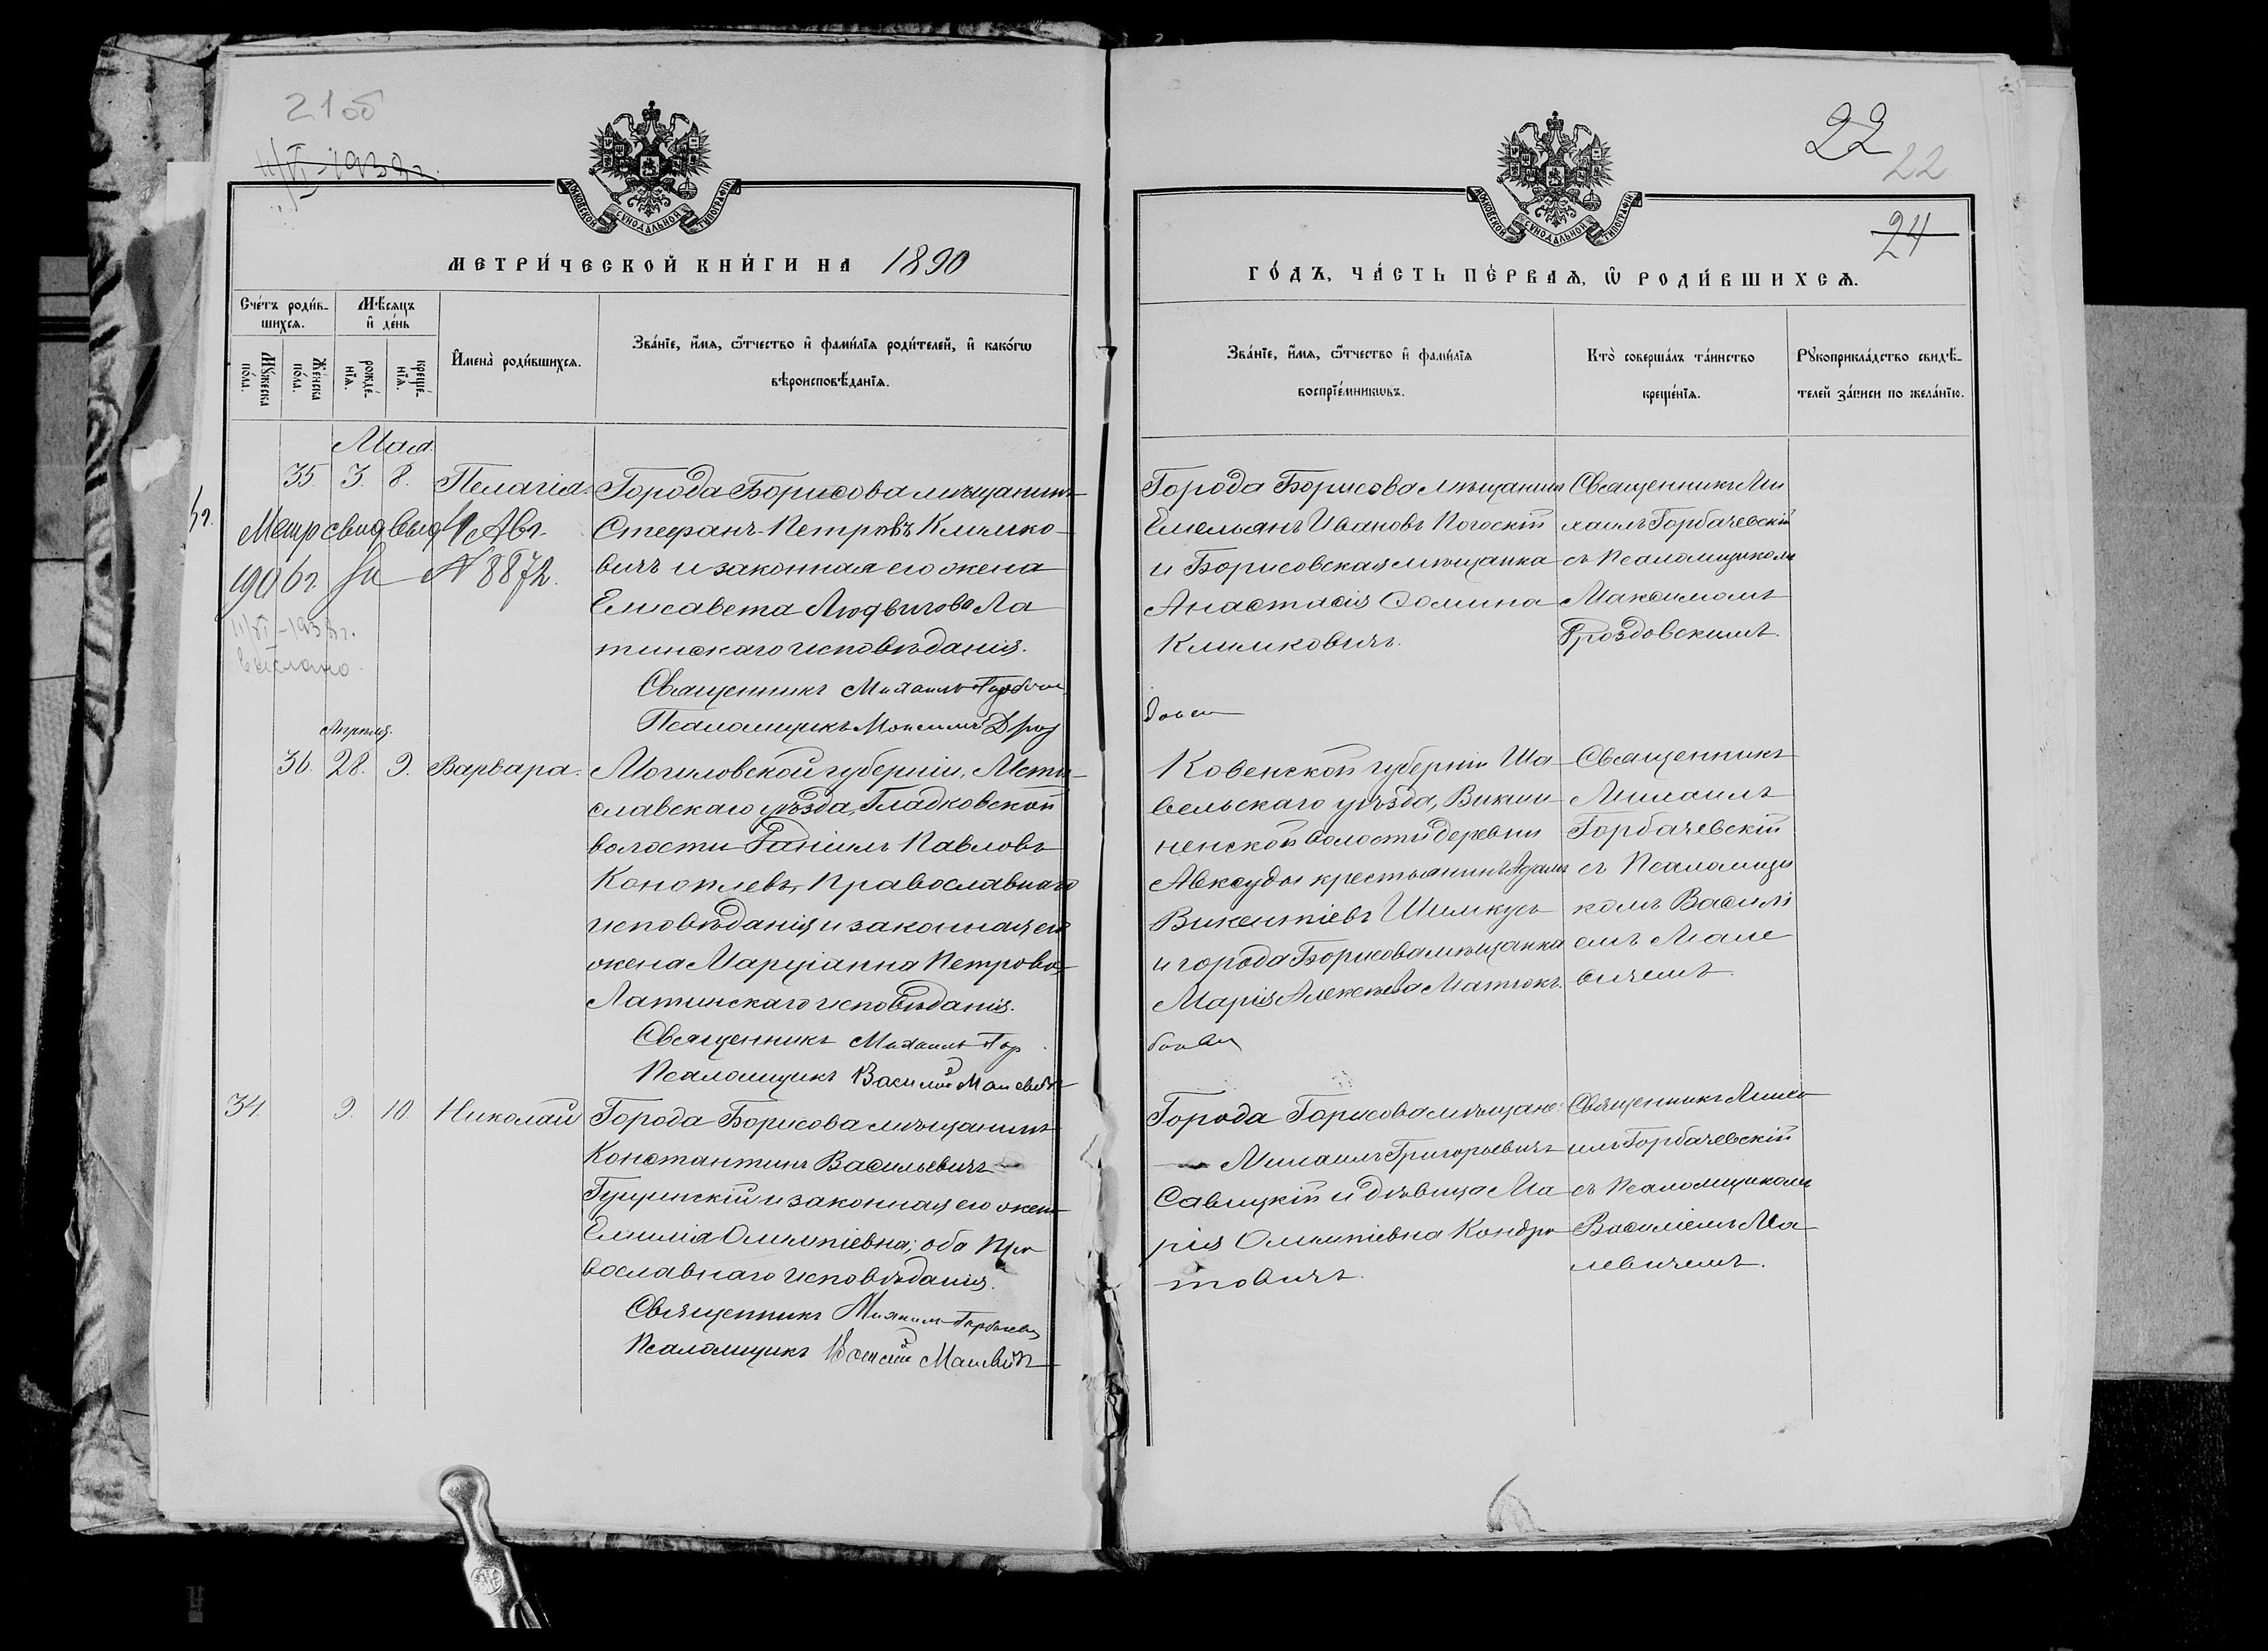 21об
11/VI-1939г.
МОСКОВСКОЙ СѴНОДАЛЬНОЙ ТИПОГРАФІИ
МЕТРИ́ЧЕСКОЙ КНИ́ГИ НА 1890
Сче́тъ роди́в-
шихсѧ.
Мѣ́сяцъ
и҆ де́нь
Мꙋ́жеска
по́ла.
Же́нска
по́ла.
рожде́-
нїѧ.
креще́-
нїѧ.
И҆мена̀ роди́вшихсѧ.
Зва́нїе, и҆́мѧ, ѻ҆́тчество и҆ фами́лїѧ роди́телей, и҆ како́гѡ
вѣроисповѣ́данїѧ.
Мая
35 3. 8. Пелагія. Города Борисова мѣщанинъ
Стефанъ Петровъ Климко-
вичъ и законная его жена
Елисавета Людвигова Ла
тинскаго исповѣданія.
Священникъ Михаилъ Горбаче
Псаломщикъ Максимъ Дроз
Метр свид выд 4 Авг.
1906 г. за № 8872.
11/VI-1939г.
выслано.
Апрѣля.
36. 28. 9. Варвара. Могиловской губерніи, Мсти
славскаго уѣзда, Гладковской
волости Даніилъ Павловъ
Коноплевъ, Православнаго
исповѣданія и законная его
жена Марціанна Петрова,
Латинскаго исповѣданія.
Священникъ Михаилъ Гор
Псаломщикъ Василій Малевич
34. 9. 10. Николай Города Борисова мѣщанинъ
Константинъ Васильевичъ
Гущинскій и законная его жена
Емилія Олимпіевна; оба Пра
вославнаго исповѣданія.
Священникъ Михаилъ Горбачев
Псаломщикъ Василій Малевич
22
22
24
МОСКОВСКОЙ СѴНОДАЛЬНОЙ ТИПОГРАФІИ
ГО́ДЪ, ЧА́СТЬ ПЕ́РВАѦ, Ѽ РОДИ́ВШИХСѦ.
Зва́нїе, и҆́мѧ, ѻ҆́тчество и҆ фами́лїѧ
воспрїе́мникѡвъ.
Кто̀ соверша́лъ та́инство
креще́нїѧ.
Рꙋкоприкла́дство свидѣ́-
телей за́писи по жела́нїю.
Города Борисова мѣщанинъ
Емельянъ Ивановъ Погоскій
и Борисовская мѣщанка
Анастасія Фомина
Климковичъ.
Священникъ Ми
хаилъ Горбачевскій
съ Псаломщикомъ
Максимомъ
Дроздовскимъ.
Ковенской губерніи Ша
вельскаго уѣзда, Викши
ненской волости деревни
крестьянинъ Адамъ
Викентіевъ Шимкусъ
и города Борисова мѣщанка
Марія Алексѣева Матюкъ.
Священникъ
Михаилъ
Горбачевскій
съ Псаломщи
комъ Василі
емъ Мале
вичемъ.
Города Борисова мѣщане:
Михаилъ Григорьевичъ
Савицкій и дѣвица Ма
рія Олимпіевна Кондра
товичъ.
Священникъ Миха
илъ Горбачевскій
съ Псаломщикомъ
Василіемъ Ма
левичемъ.